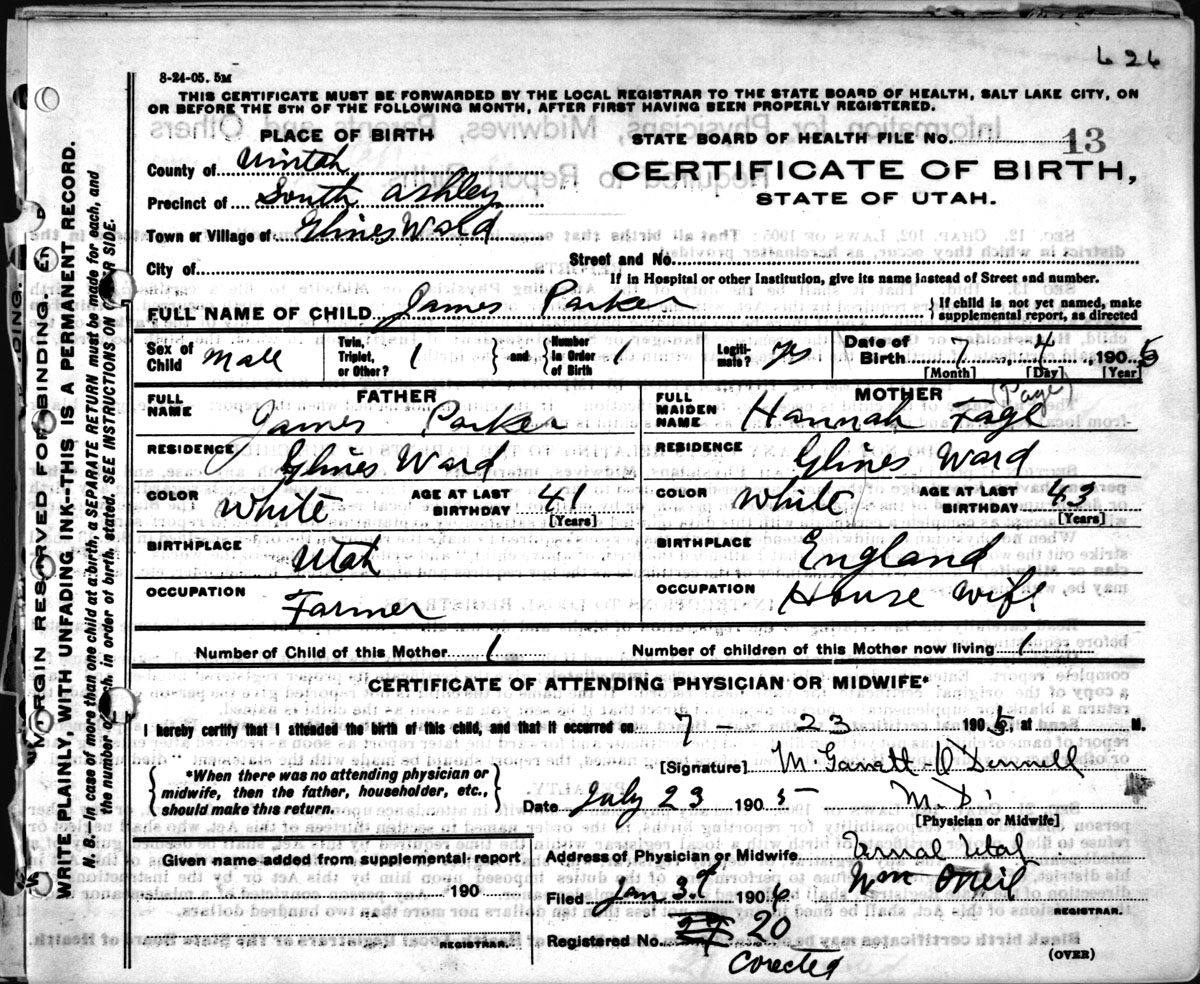 626
8-24-05. 5M
THIS CERTIFICATE MUST BE FORWARDED BY THE LOCAL REGISTRAR TO THE STATE BOARD OF HEALTH, SALT LAKE CITY, ON
OR BEFORE THE 5TH OF THE FOLLOWING MONTH, AFTER FIRST HAVING BEEN PROPERLY REGISTERED.
PLACE OF BIRTH
STATE BOARD OF HEALTH FILE No. 13
County of Uintah
CERTIFICATE OF BIRTH,
STATE OF UTAH.
Precinct of South Ashley
Town or Village of Glines Ward
City of
Street and No.
If in Hospital or other Institution, give its name instead of Street and number.
FULL NAME OF CHILD James Parker
} If child is not yet named, make
supplemental report, as directed
Sex of Child Male
Twin, Triplet, or Other? 1 } and { Number in Order of Birth 1
Legitimate? Ys
Date of Birth 7 4, 1905
[Month] [Day] [Year]
FATHER
MOTHER (Page)
FULL NAME James Parker
FULL MAIDEN NAME Hannah Fage
RESIDENCE Glines Ward
RESIDENCE Glines Ward
COLOR White AGE AT LAST BIRTHDAY 41 [Years]
COLOR White AGE AT LAST BIRTHDAY 43 [Years]
BIRTHPLACE Utah
BIRTHPLACE England
OCCUPATION Farmer
OCCUPATION House wife
Number of Child of this Mother 1 Number of children of this Mother now living 1
CERTIFICATE OF ATTENDING PHYSICIAN OR MIDWIFE*
I hereby certify that I attended the birth of this child, and that it occurred on 7 - 23 1905, at M.
{ *When there was no attending physician or
midwife, then the father, householder, etc.,
should make this return. }
[Signature] M. Garrett-O'Donnell
Date July 23 1905 M.D.
[Physician or Midwife]
Given name added from supplemental report
190
REGISTRAR.
Address of Physician or Midwife Vernal Utah
Filed Jan 3d 1906 Wm Oneil
REGISTRAR.
Registered No. 20
Corected
(OVER)
MARGIN RESERVED FOR BINDING.
WRITE PLAINLY, WITH UNFADING INK--THIS IS A PERMANENT RECORD.
N. B.--In case of more than one child at a birth, a SEPARATE RETURN must be made for each, and
the number of each, in order of birth, stated. SEE INSTRUCTIONS ON SIDE.